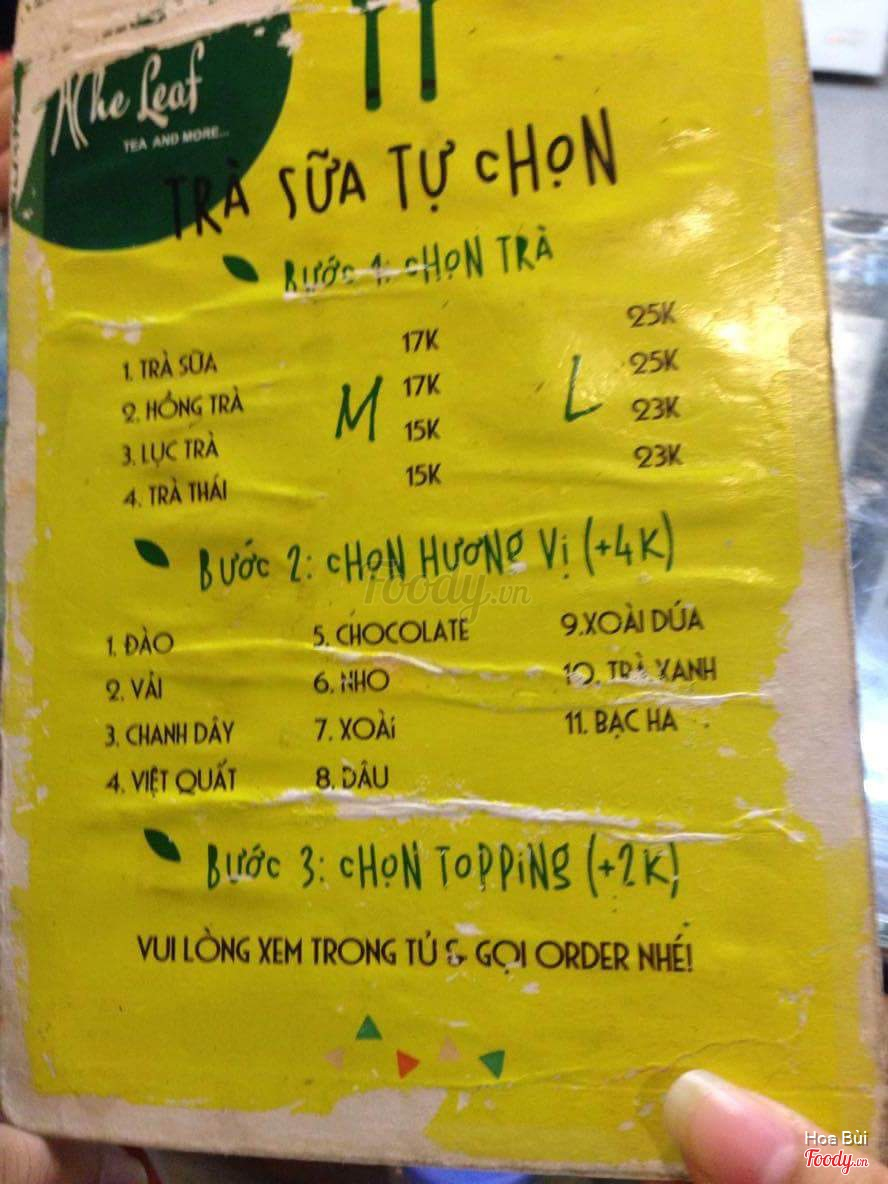 The Leaf
TEA AND MORE...
TRÀ SỮA TỰ CHỌN
BƯỚC 1: CHỌN TRÀ
1. TRÀ SỮA 17K 25K
2. HỒNG TRÀ 17K 25K
3. LỤC TRÀ 15K 23K
4. TRÀ THÁI 15K 23K
M L
BƯỚC 2: CHỌN HƯƠNG VỊ (+4K)
Foody.vn
1. ĐÀO 5. CHOCOLATE 9.XOÀI DỨA
2. VẢI 6. NHO 10. TRÀ XANH
3. CHANH DÂY 7. XOÀI 11. BẠC HA
4. VIỆT QUẤT 8. DÂU
BƯỚC 3: CHỌN TOPPING (+2K)
VUI LÒNG XEM TRONG TỦ & GỌI ORDER NHÉ!
Hoa Bùi
Foody.vn